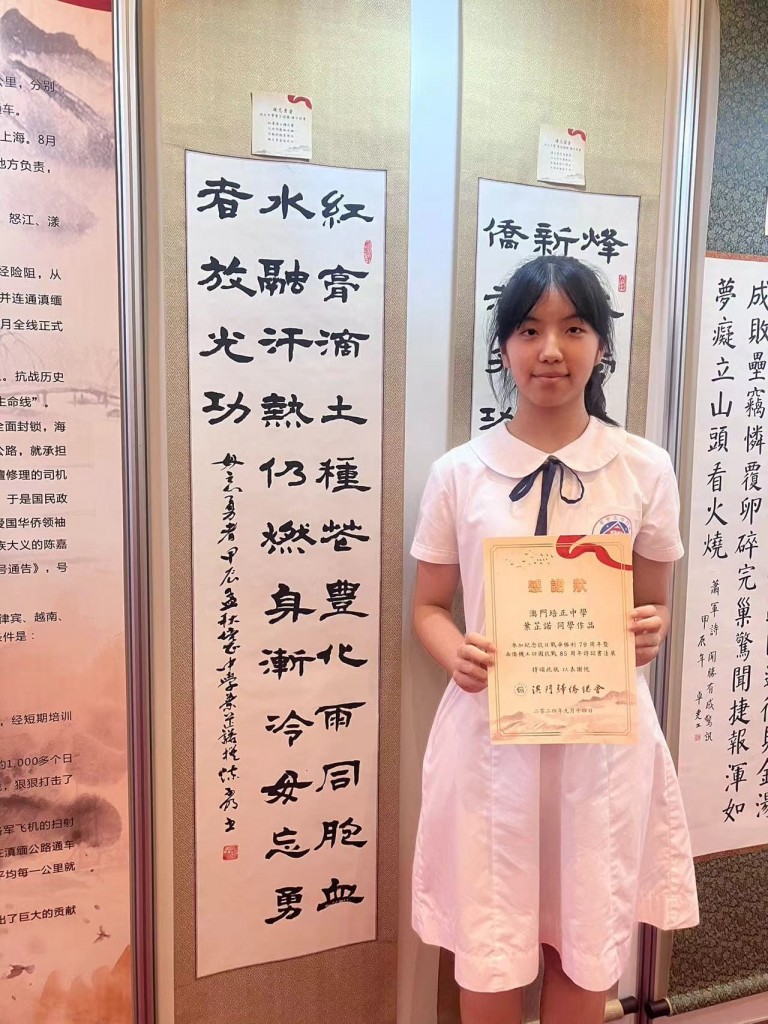 公里，分别
通车。
上海。8月
地方负责，
、怒江、漾
经险阻，从
并连通滇缅
月全线正式
。抗战历史
生命线”。
全面封锁，海
公路，就承担
修理的司机
。于是国民政
爱国华侨领袖
族大义的陈嘉
号通告》，号
律宾、越南、
条件是：
，经短期培训
约1,000多个日
，狠狠打击了
将军飞机的扫射
在滇缅公路通车
平均每一公里就
出了巨大的贡献
毋忘勇者
紅膏滴土種花豐化雨同胞血
水融汗熱仍燃身漸冷毋忘勇
者放光功
毋忘勇者 甲辰孟秋培正中學葉芷諾撰
烽
新
僑
成敗壘竊憐覆卵碎完巢驚聞捷報渾如
夢癡立山頭看火燒
蕭軍詩 聞勝有感
甲辰年
感謝狀
澳門培正中學
葉芷諾 同學作品
參加紀念抗日戰爭勝利79周年暨
南僑機工回國抗戰85周年詩詞書法展
特頒此狀 以表謝忱
澳門歸僑總會
二零二四年九月十四日